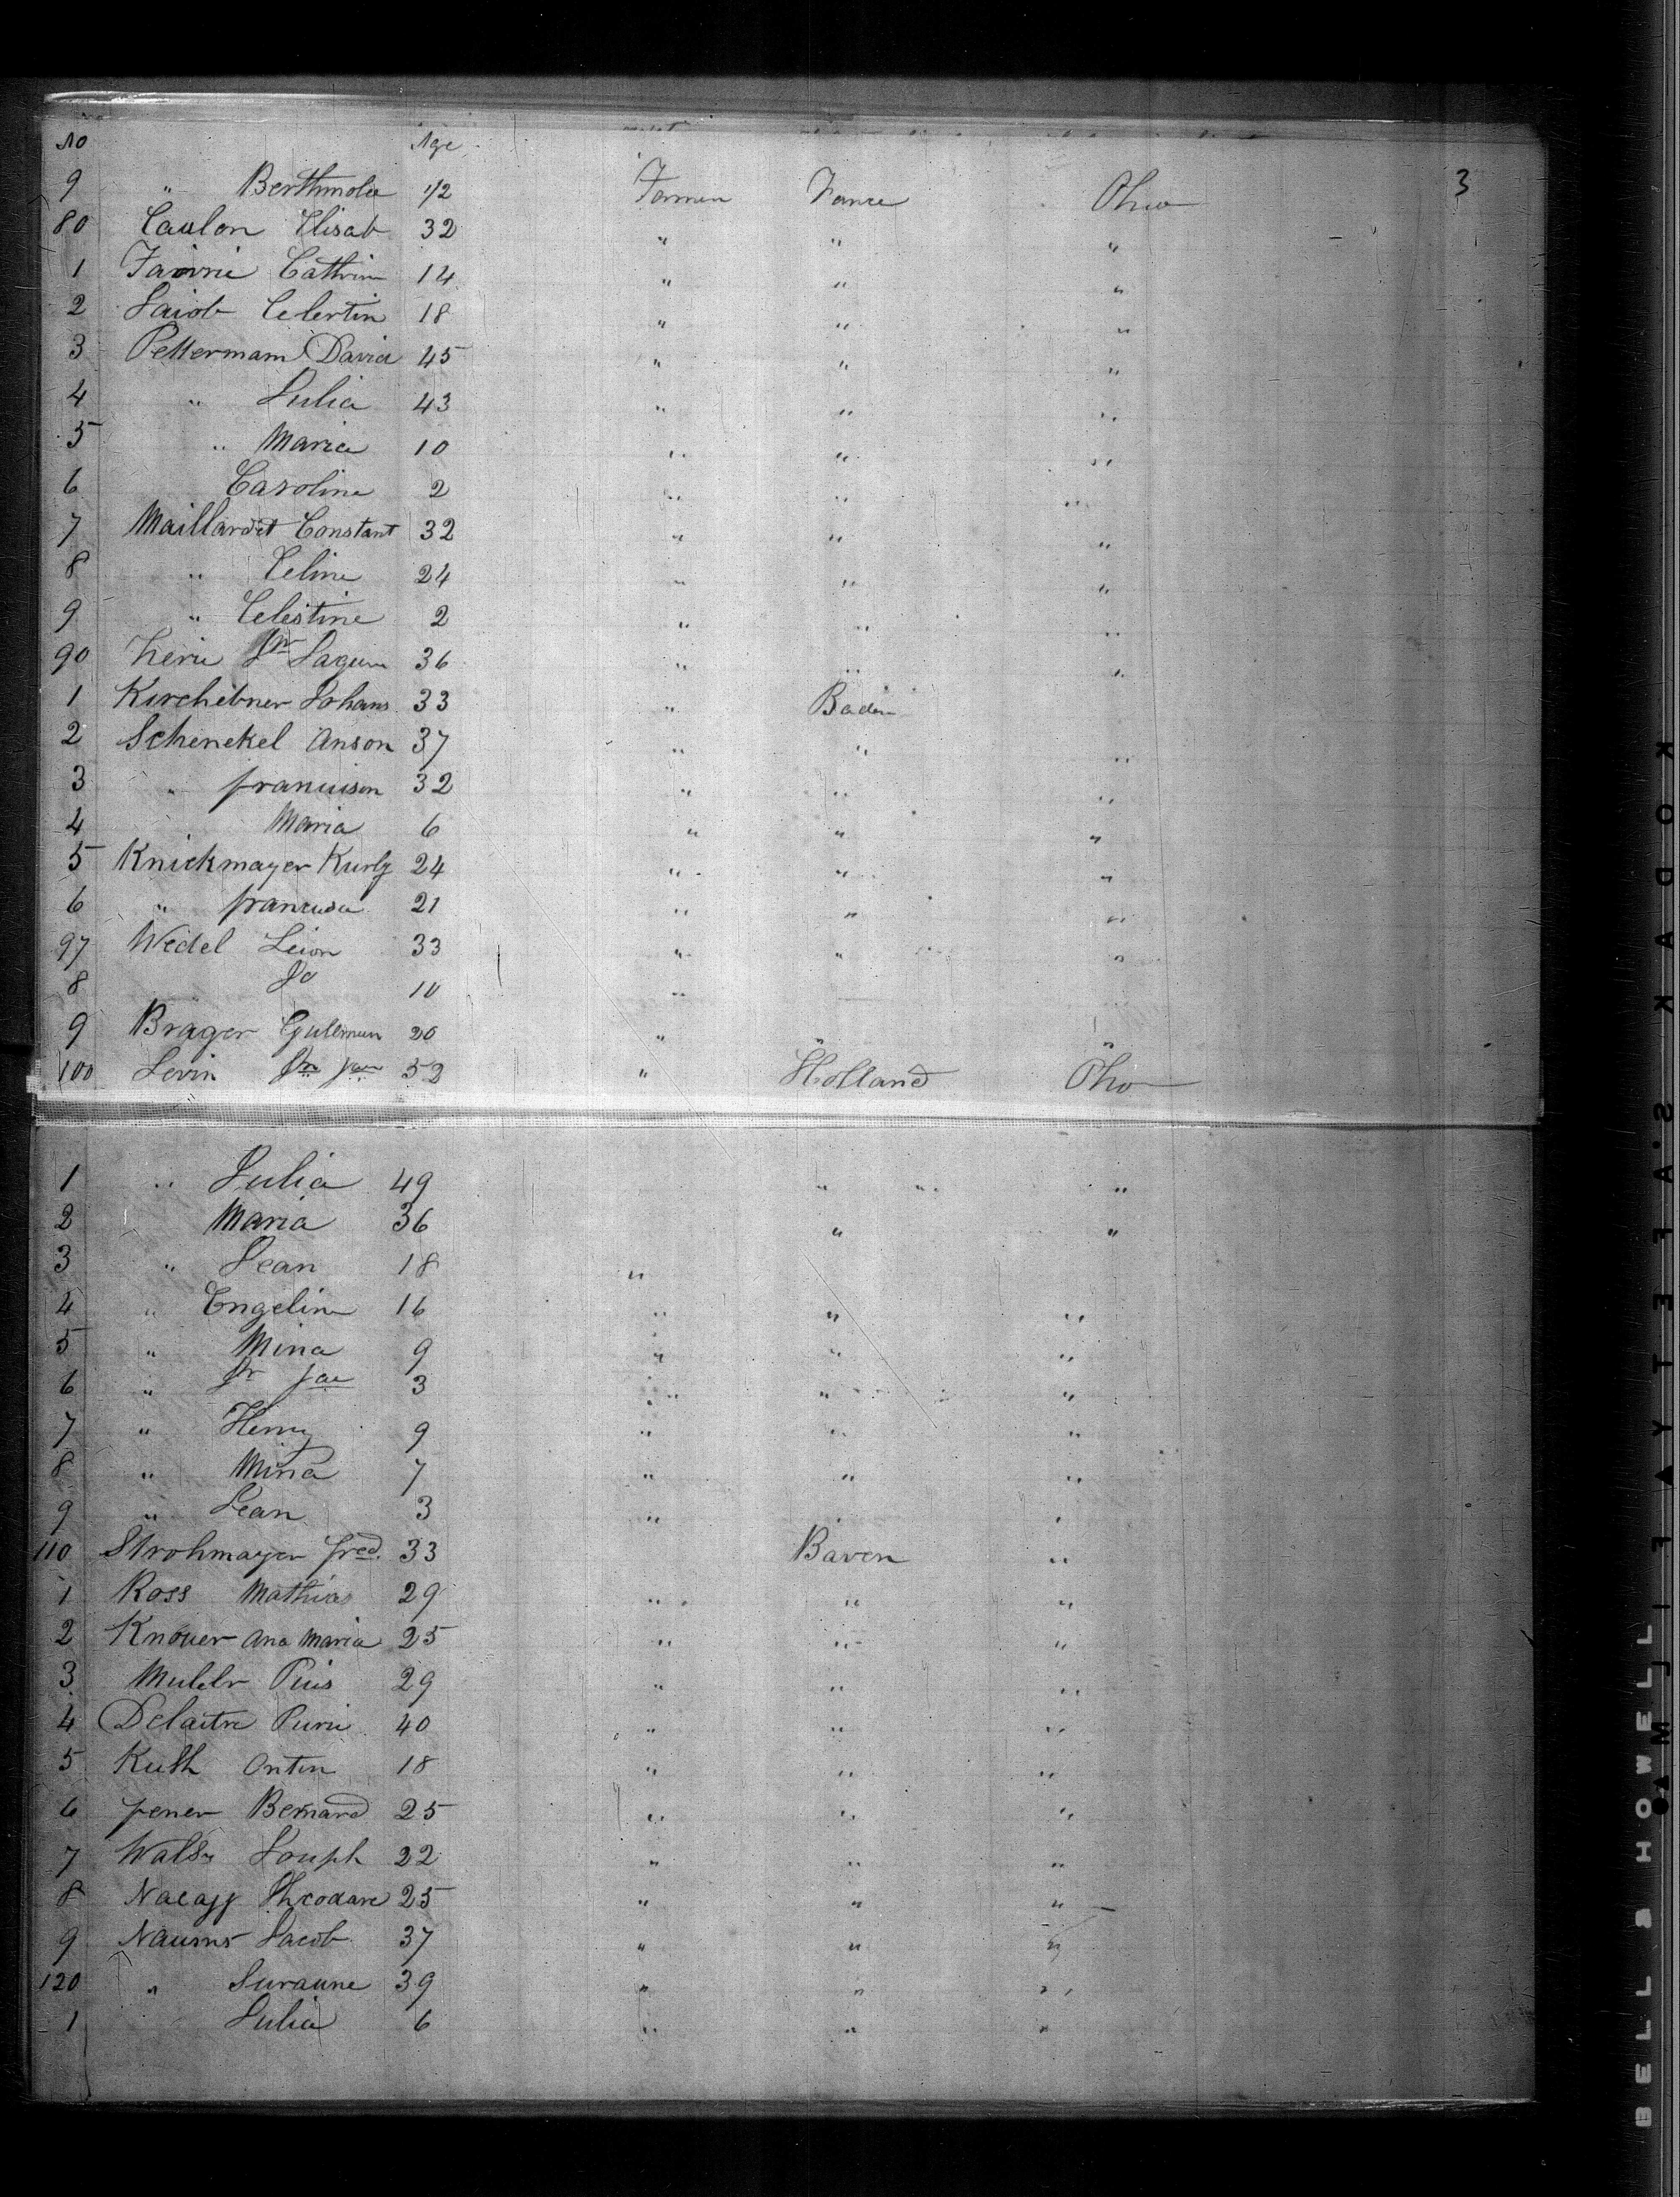 No Age
9 " Berthmolee 1/2 Farmer France Ohio 3
80 Caulon Elisab 32 " " "
1 Faivrie Cathrin 14 " " "
2 Jaiob Celertin 18 " " "
3 Pettermann David 45 " " "
4 " Julia 43 " " "
5 " Maria 10 " " "
6 Caroline 2 " " "
7 Maillardet Constant 32 " " "
8 " Celine 24 " " "
9 " Celestine 2 " " "
90 36 " " "
1 Kirchebner Johans 33 " Baden
2 Schenekel Anson 37 " " "
3 " 32 " " "
4 Maria 6 " " "
5 Knickmayer 24 " " "
6 " 21 " " "
97 Wedel Leion 33 " " "
8 Do 10 "
9 Brager 20 " " "
100 Levin 52 " Holland Ohio
1 " Julia 49 " " "
2 Maria 36 " "
3 " Jean 18 "
4 " Engeline 16 " " "
5 " Mina 9 " " "
6 " 3 " " "
7 " Henry 9 " " "
8 " Mina 7 " " "
9 " Jean 3 " "
110 Strohmayer fred. 33 Baven "
1 Ross Mathias 29 " " "
2 Knouer Ana Maria 25 " " "
3 Muleler Pius 29 " " "
4 Delaitre 40 " " "
5 Kuth Anten 18 " " "
6 fener Bernard 25 " " "
7 Joseph 22 " " "
8 Theodare 25 " " "
9 Naums Jacob 37 " " "
120 " Suraune 39 " " "
1 Julia 6 " " "
KODAK SAFETY FILM
BELL & HOWELL